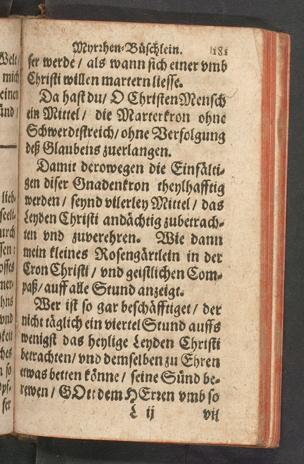 Myrrhen-Büschlein. 181
ser werde / als wann sich einer vmb
Christi willen martern liesse.
Da hast du / O Christen Mensch
ein Mittel / die Marterkron ohne
Schwerdtstreich / ohne Verfolgung
deß Glaubens zuerlangen.
Damit derowegen die Einfälti-
gen diser Gnadenkron theylhafftig
werden / seynd vilerley Mittel / das
Leyden Christi andächtig zubetrach-
ten vnd zuverehren. Wie dann
mein kleines Rosengärtlein in der
Cron Christi / vnd geistlichen Com-
paß / auff alle Stund anzeigt.
Wer ist so gar beschäfftiget / der
nicht täglich ein viertel Stund auffs
wenigst das heylige Leyden Christi
betrachten / vnd demselben zu Ehren
etwas betten könne / seine Sünd be-
rewen / GOtt dem HErren vmb so
L ij vil